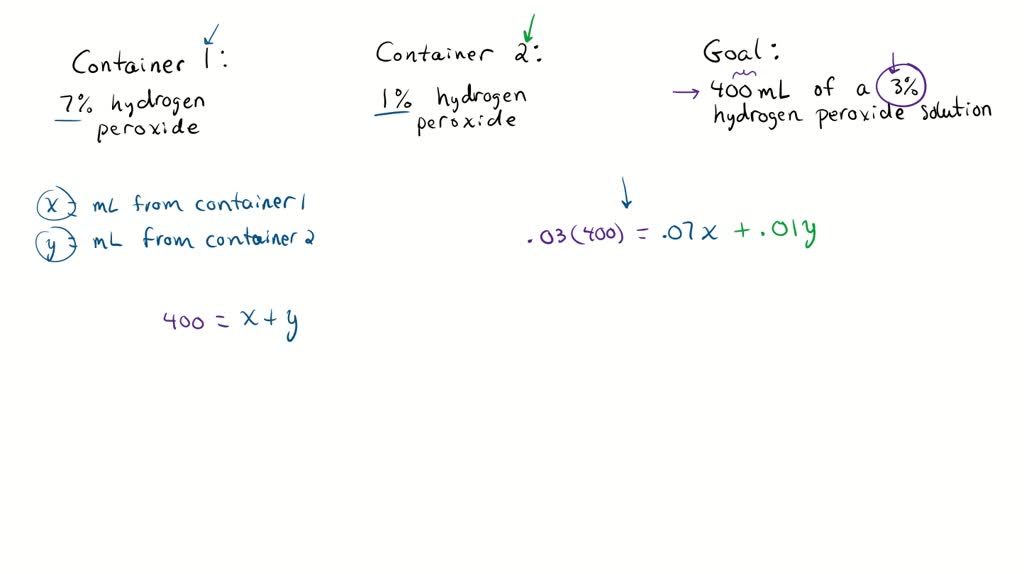 Container 1:
7% hydrogen
peroxide
Container 2:
1% hydrogen
peroxide
Goal:
→ 400 mL of a 3%
hydrogen peroxide solution
x = mL from container 1
y = mL from container 2
.03(400) = .07x + .01y
400 = x + y